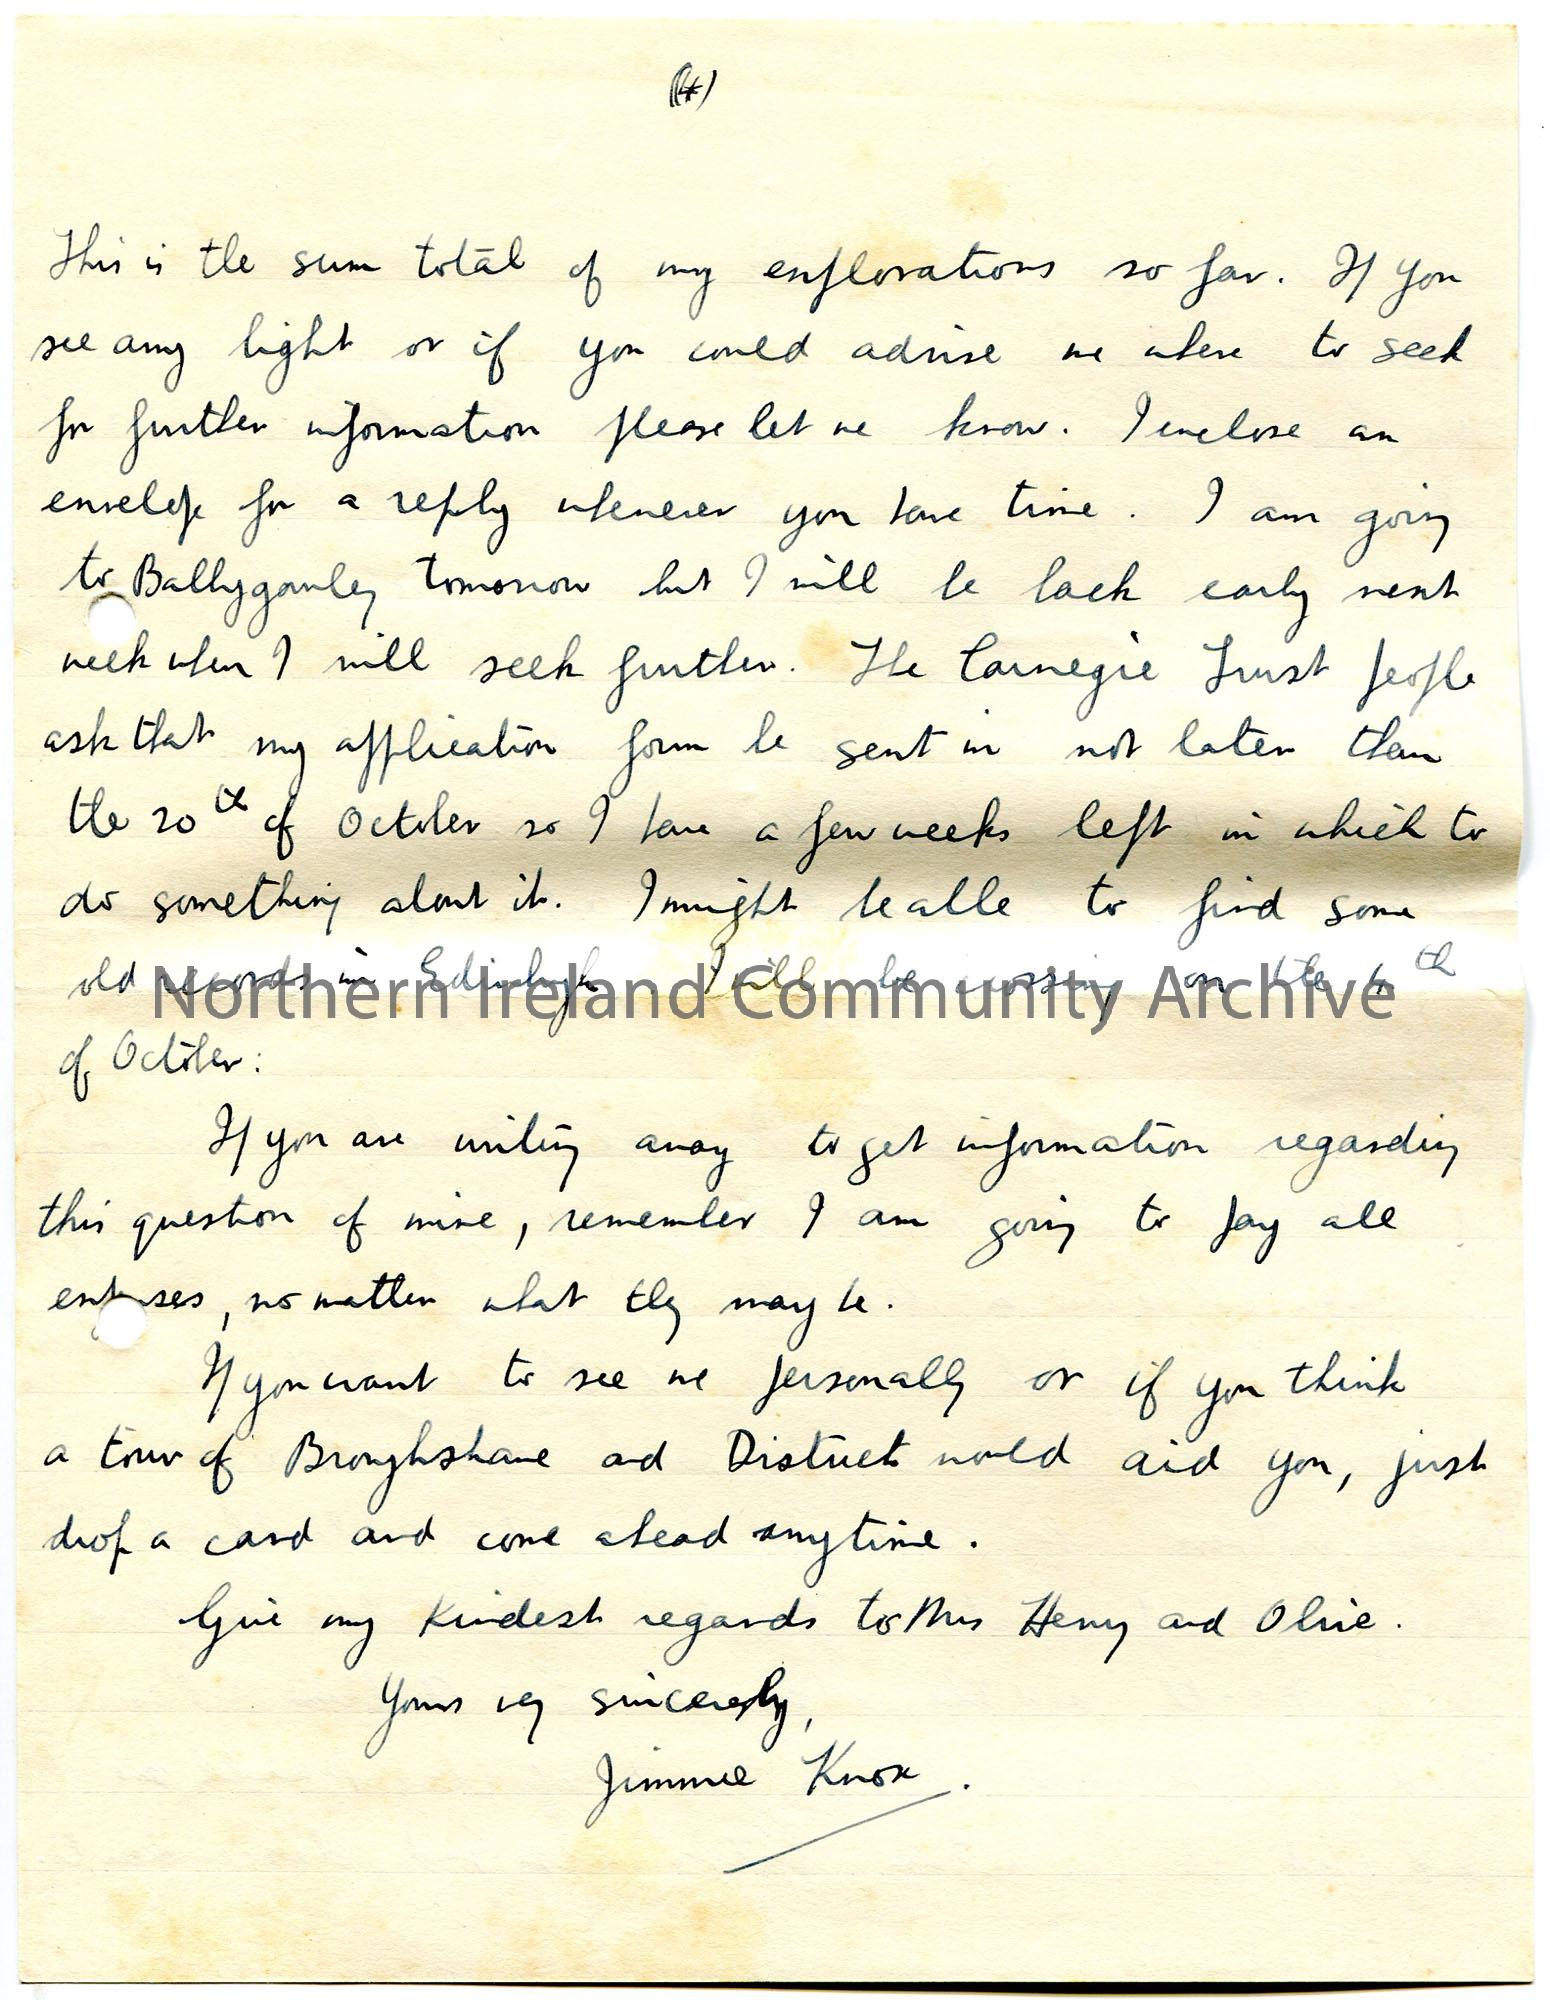 (4)
This is the sum total of my explorations so far. If you
see any light or if you could advise me where to seek
for further information please let me know. I enclose an
envelope for a reply whenever you have time. I am going
to Ballygawley tomorrow but I will be back early next
week when I will seek further. The Carnegie Trust people
ask that my application form be sent in not later than
the 20th of October so I have a few weeks left in which to
do something about it. I might be able to find some
old records in Edinburgh. I will be crossing on the 4th
Northern Ireland Community Archive
of October:
If you are writing away to get information regarding
this question of mine, remember I am going to pay all
expenses, no matter what they may be.
If you want to see me personally or if you think
a tour of Broughshane and District would aid you, just
drop a card and come ahead anytime.
Give my kindest regards to Mrs Henry and Olive.
Yours very sincerely,
Jimmie Knox.